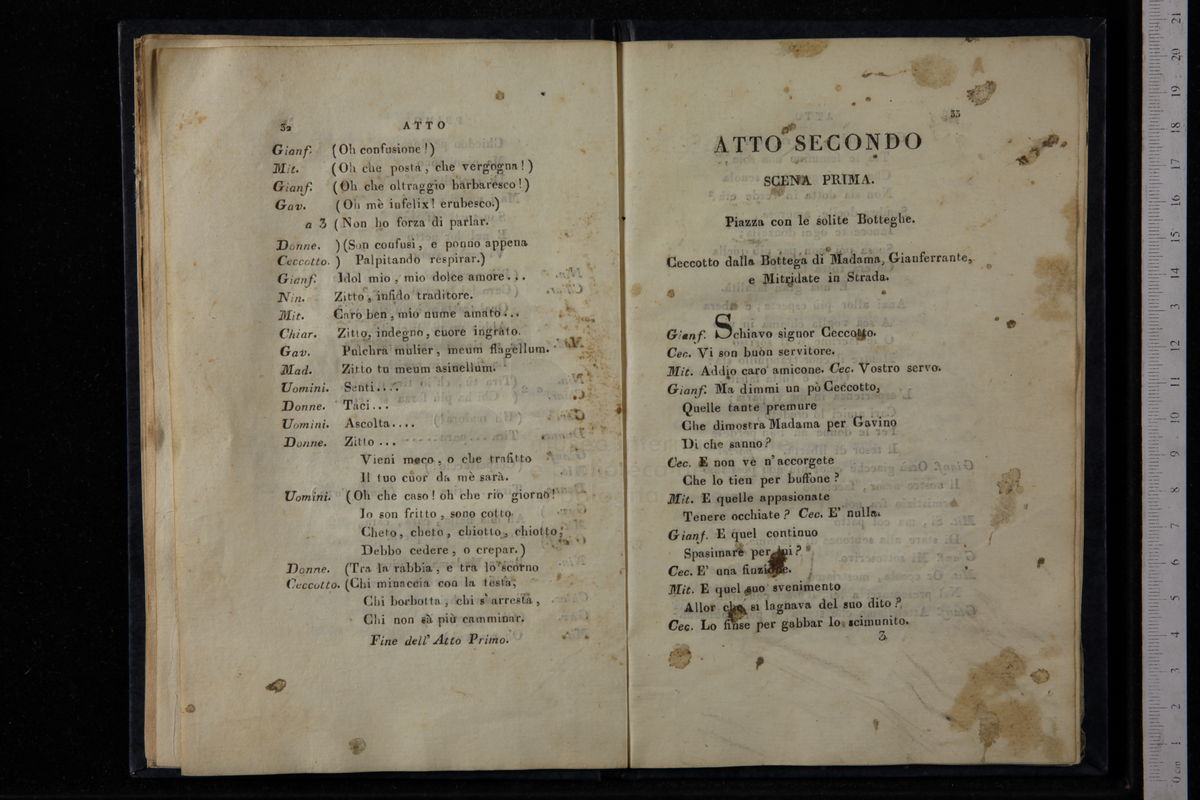 32 ATTO
Gianf. (Oh confusione!)
Mit. (Oh che posta, che vergogna!)
Gianf. (Oh che oltraggio barbaresco!)
Gav. (Oh mè infelix! erubesco.)
a 3 (Non ho forza di parlar.
Donne. )(Son confusi, e ponno appena
Ceccotto. ) Palpitando respirar.)
Gianf. Idol mio, mio dolce amore...
Nin. Zitto, infido traditore.
Mit. Caro ben, mio nume amato...
Chiar. Zitto, indegno, cuore ingrato.
Gav. Pulchra mulier, meum flagellum.
Mad. Zitto tu meum asinellum.
Uomini. Senti....
Donne. Taci...
Uomini. Ascolta....
Donne. Zitto...
Vieni meco, o che trafitto
Il tuo cuor da mè sarà.
Uomini. (Oh che caso! oh che rio giorno!
Io son fritto, sono cotto.
Cheto, cheto, chiotto, chiotto;
Debbo cedere, o crepar.)
Donne. (Tra la rabbia, e tra lo scorno
Ceccotto. (Chi minaccia con la testa,
Chi borbotta, chi s'arresta,
Chi non sà più camminar.
Fine dell'Atto Primo.
33
ATTO SECONDO
SCENA PRIMA.
Piazza con le solite Botteghe.
Ceccotto dalla Bottega di Madama, Gianferrante,
e Mitridate in Strada.
Gianf. Schiavo signor Ceccotto.
Cec. Vi son buon servitore.
Mit. Addio caro amicone. Cec. Vostro servo.
Gianf. Ma dimmi un pò Ceccotto,
Quelle tante premure
Che dimostra Madama per Gavino
Di che sanno?
Cec. E non ve n'accorgete
Che lo tien per buffone?
Mit. E quelle appasionate
Tenere occhiate? Cec. E' nulla.
Gianf. E quel continuo
Spasimare per lui?
Cec. E' una finzione.
Mit. E quel suo svenimento
Allor che si lagnava del suo dito?
Cec. Lo finse per gabbar lo scimunito.
3